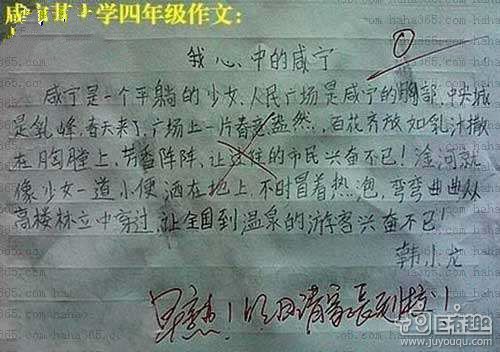 咸宁某小学四年级作文：
我心中的咸宁
咸宁是一个平躺的少女，人民广场是咸宁的胸部，中央城
是乳峰，春天来了，广场上一片春意盎然，百花齐放如乳汁撒
在胸膛上，芳香阵阵，让过往的市民兴奋不已！淦河就
像少女一道小便洒在地上，不时冒着热泡，弯弯曲曲从
高楼林立中穿过，让全国到温泉的游客兴奋不已！
韩小龙
明日请家长到校！
www.juyouqu.com